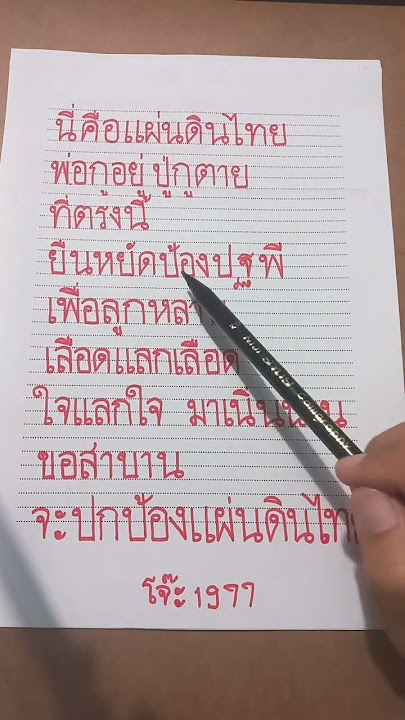 นี่คือแผ่นดินไทย
พ่อกูอยู่ ปู่กูตาย
ที่ตรงนี้
ยืนหยัดป้องปฐพี
เพื่อลูกหลาน
เลือดแลกเลือด
ใจแลกใจ มาเนิ่นนาน
ขอสาบาน
จะปกป้องแผ่นดินไทย
โจ๊ะ 1977